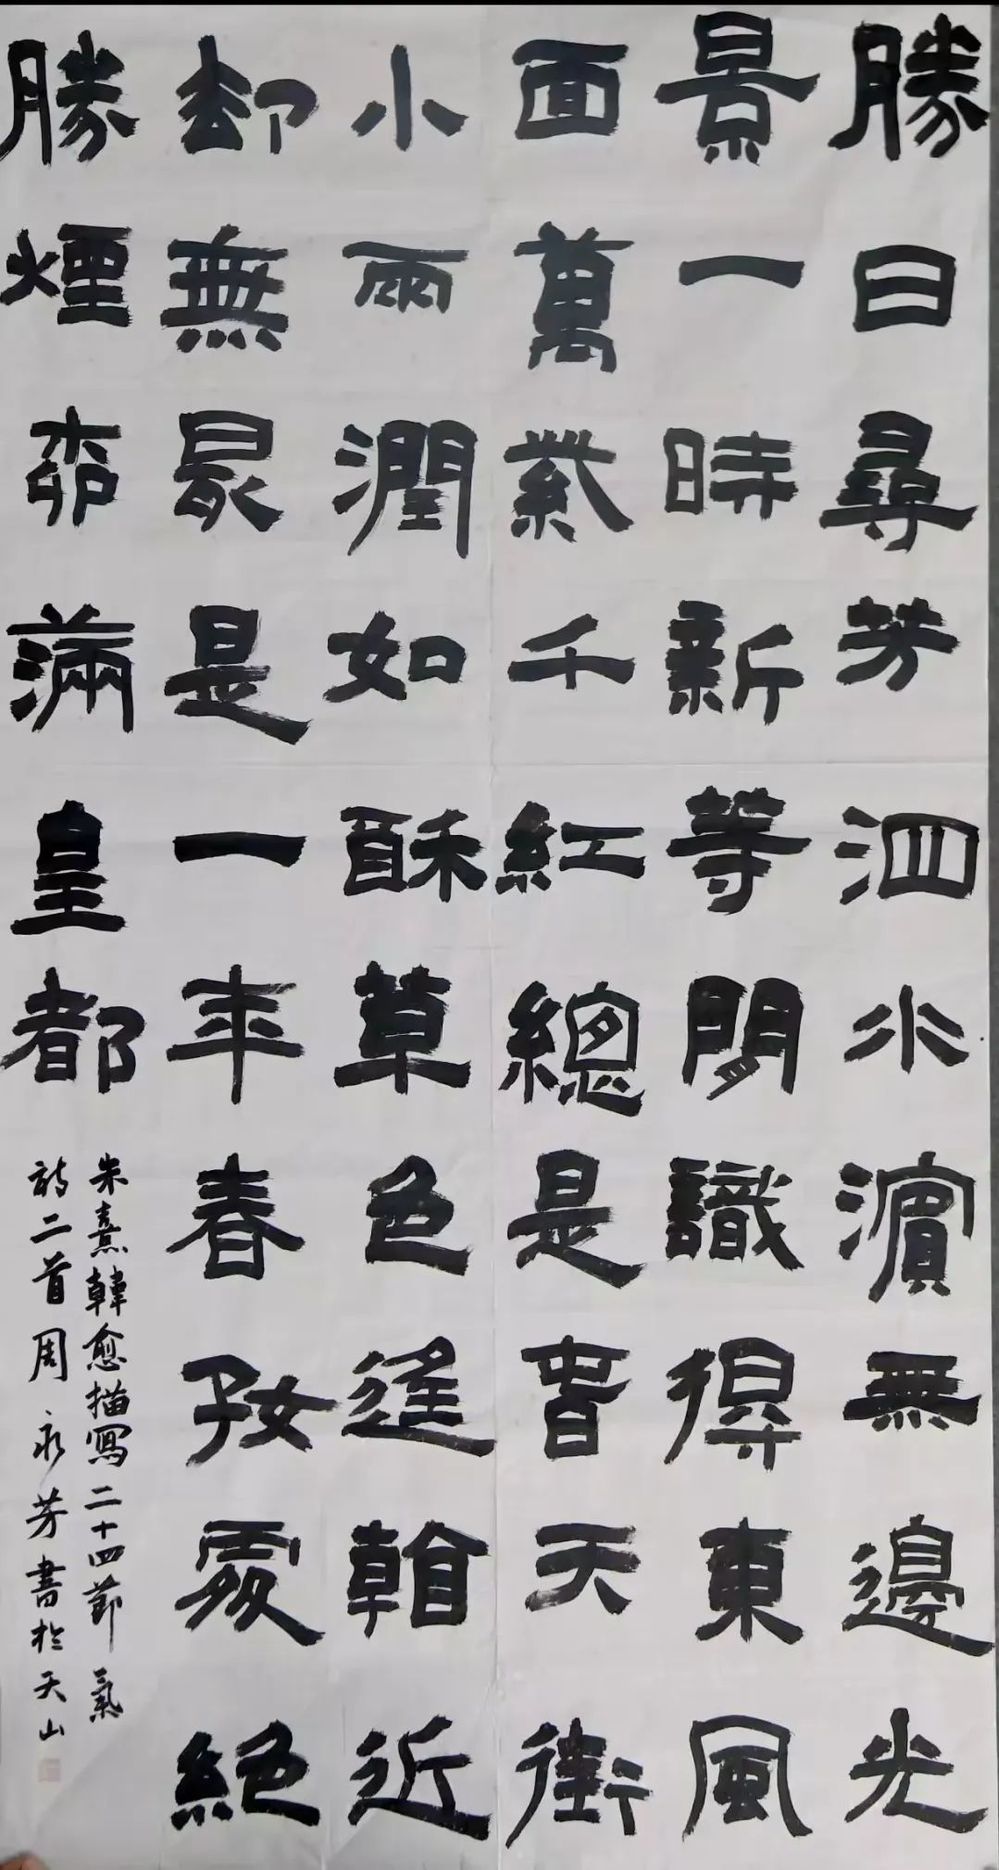 勝日尋芳泗水濱無邊光
景一時新等閒識得東風
面萬紫千紅總是春天街
小雨潤如酥草色遙看近
却無最是一年春好處絕
勝煙柳滿皇都
朱熹韓愈描寫二十四節氣
詩二首周永芳書於天山